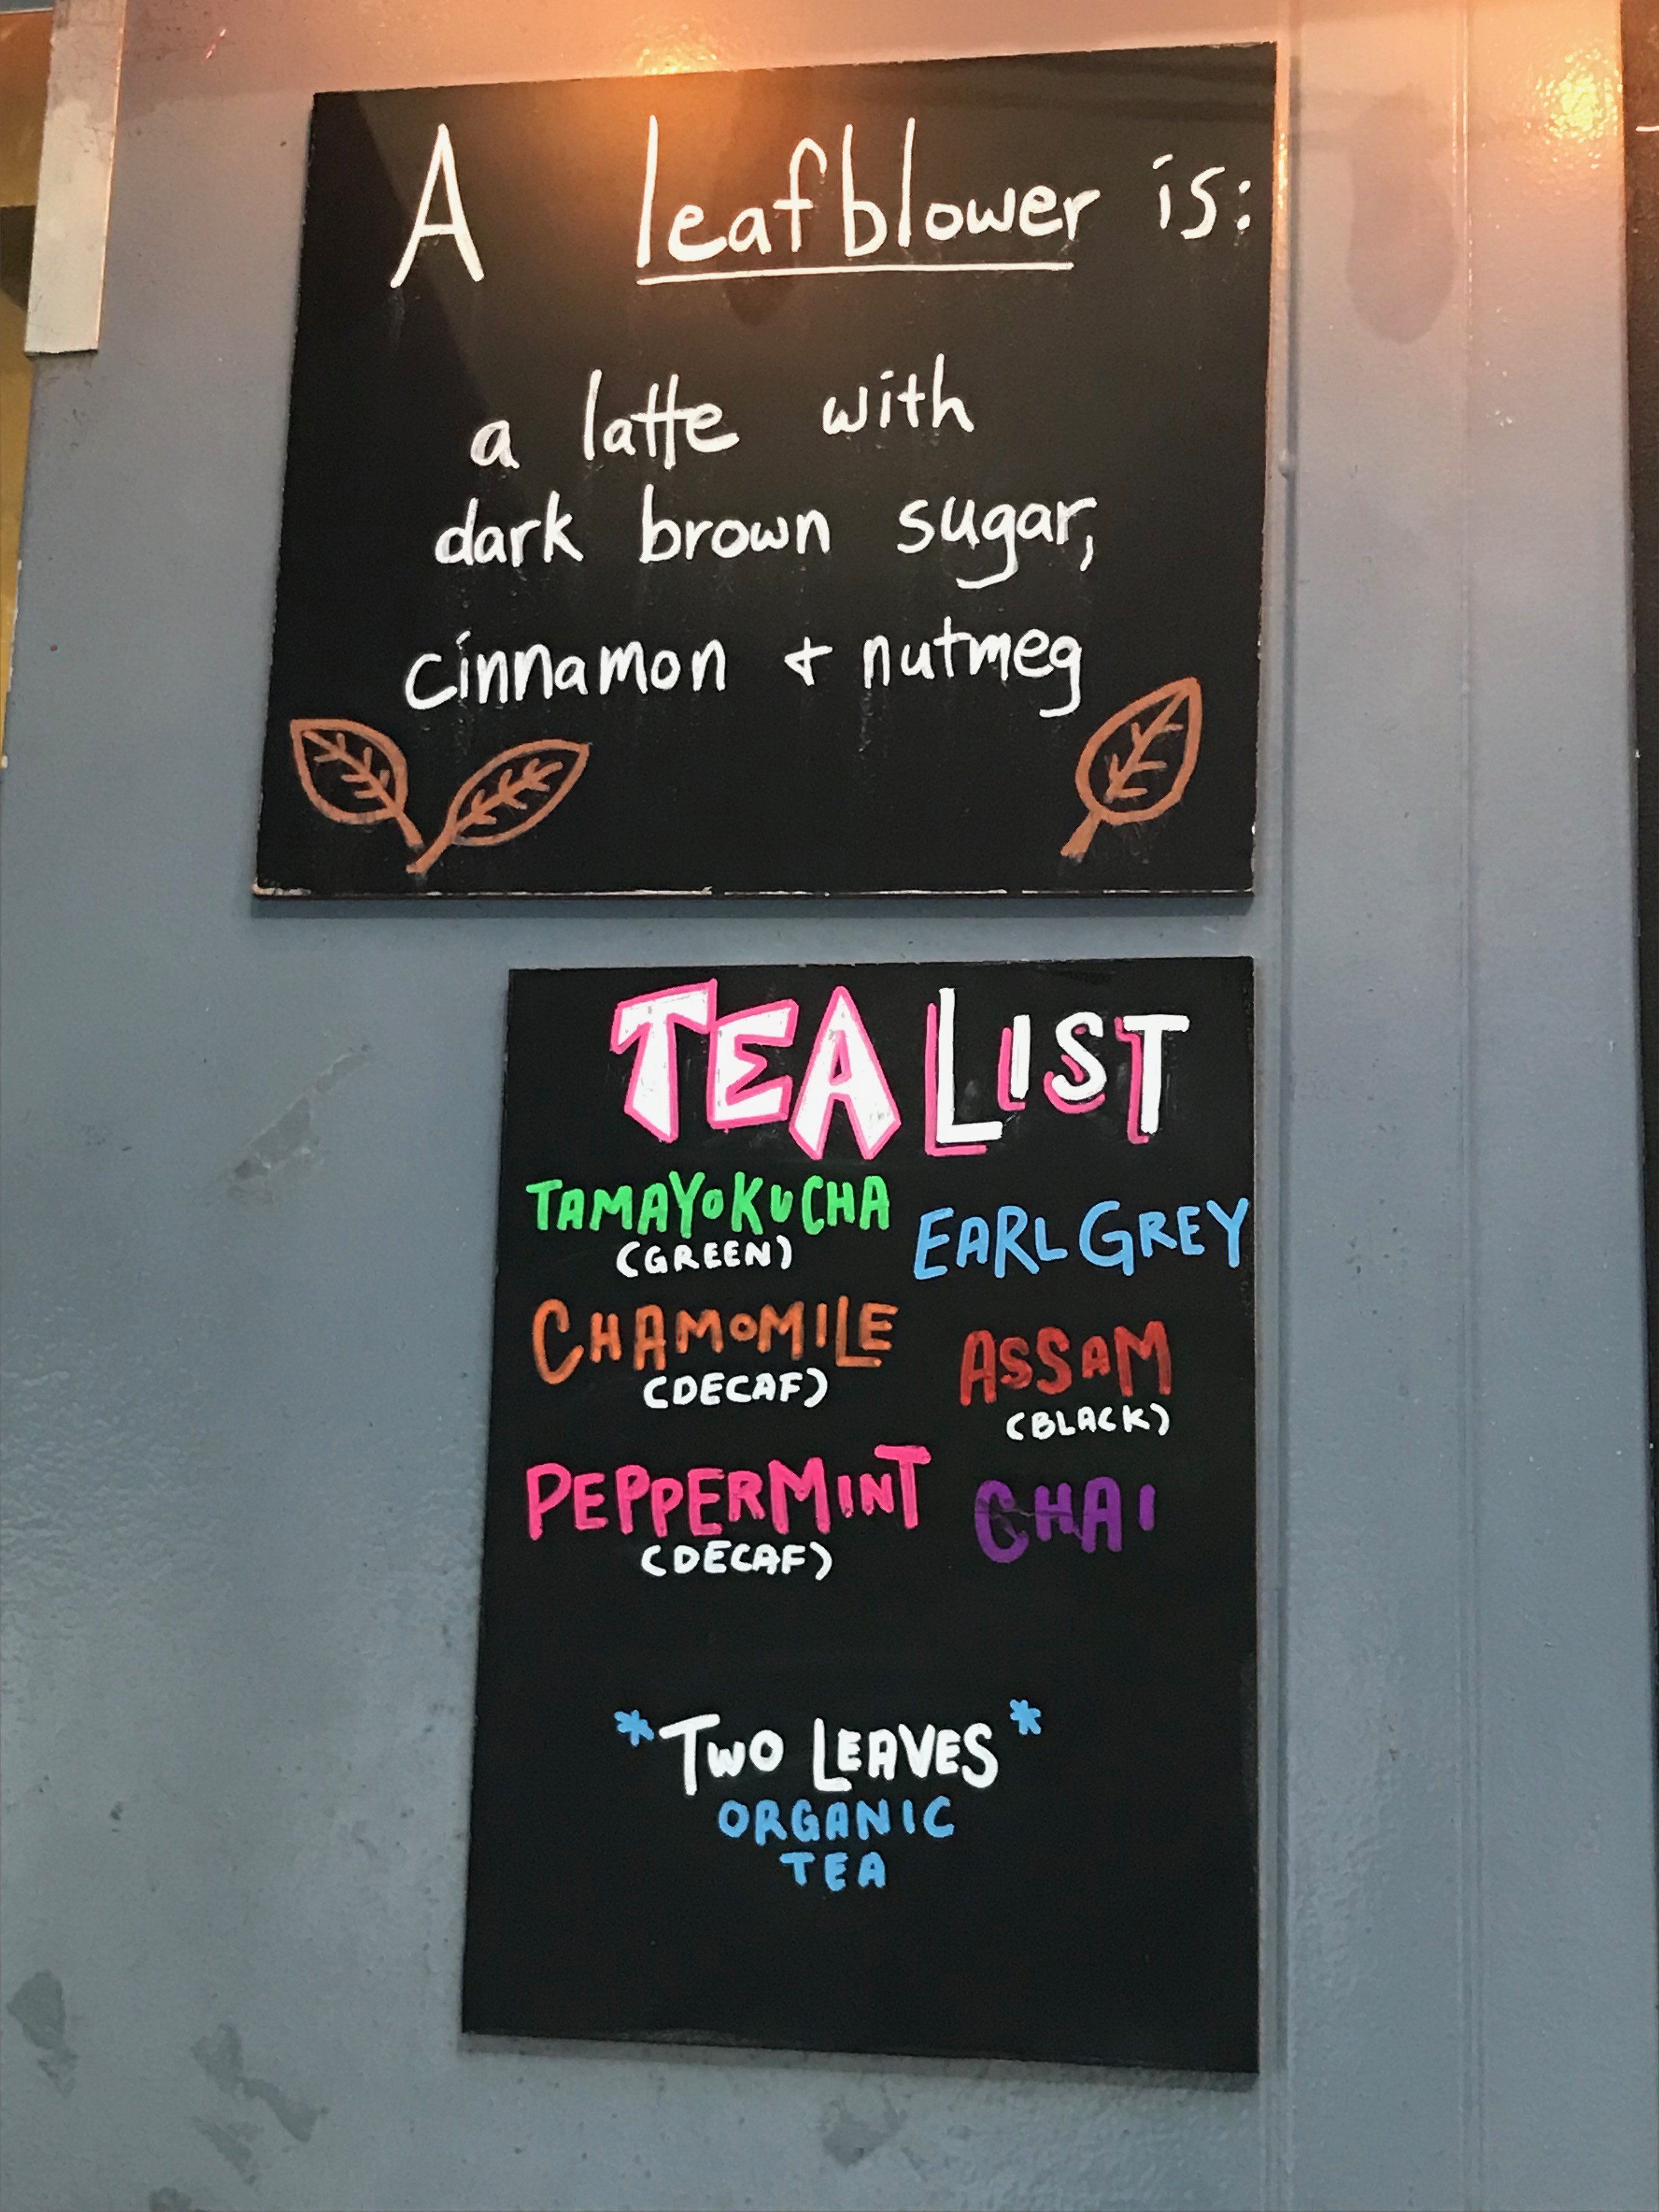 A leafblower is:
a latte with
dark brown sugar,
cinnamon + nutmeg
TEA LIST
TAMAYOKUCHA
(GREEN)
CHAMOMILE
(DECAF)
PEPPERMINT
(DECAF)
EARL GREY
ASSAM
(BLACK)
CHAI
*TWO LEAVES*
ORGANIC
TEA